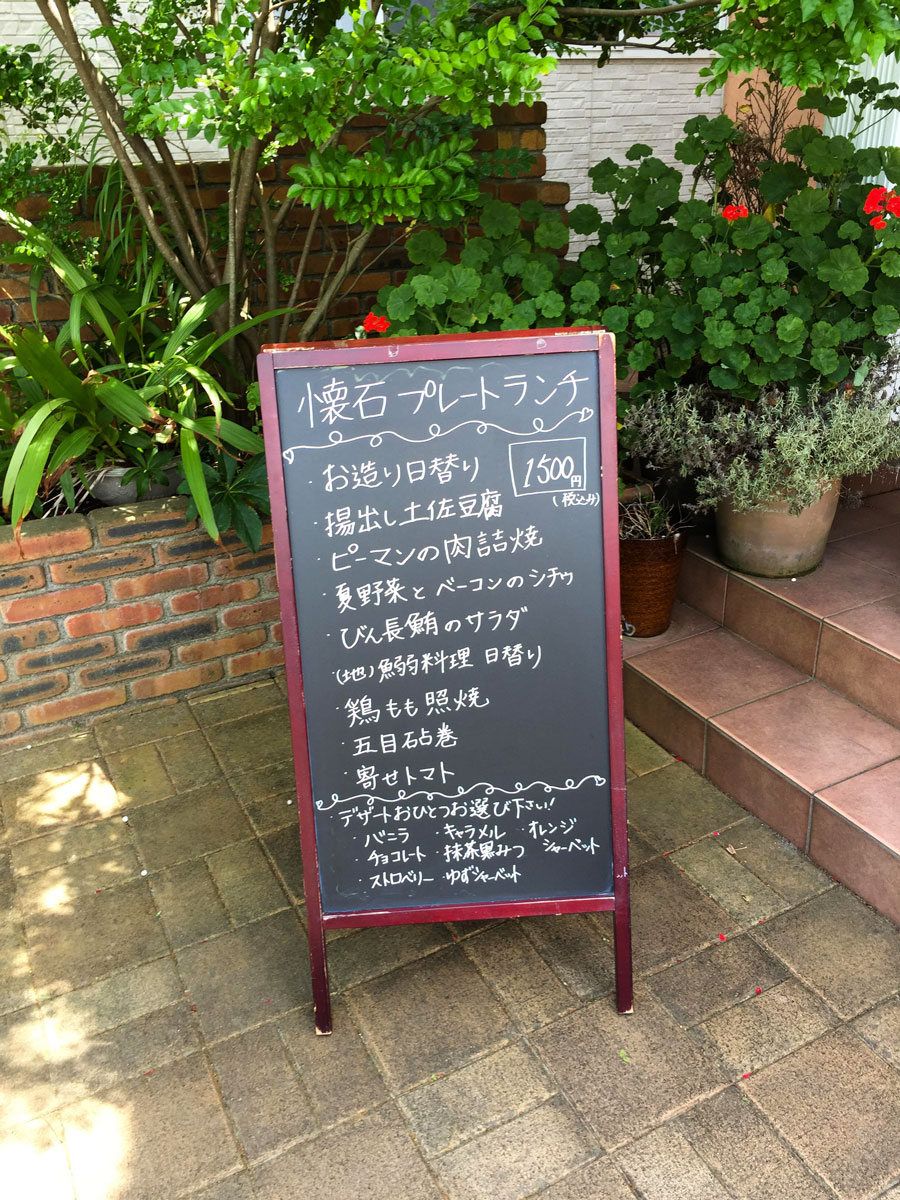 懐石 プレートランチ
・お造り日替り
1500円
(税込み)
・揚出し土佐豆腐
・ピーマンの肉詰焼
・夏野菜とベーコンのシチゥ
・びん長鮪のサラダ
・(地)鰯料理 日替り
・鶏もも照焼
・五目砧巻
・寄せトマト
デザートおひとつお選び下さい!
・バニラ ・キャラメル ・オレンジシャーベット
・チョコレート ・抹茶黒みつ
・ストロベリー ・ゆずシャーベット